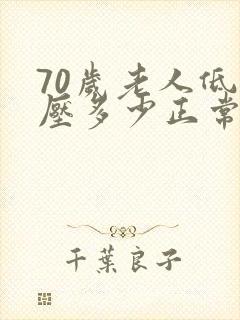 70歲老人低
壓多少正常
千葉良子